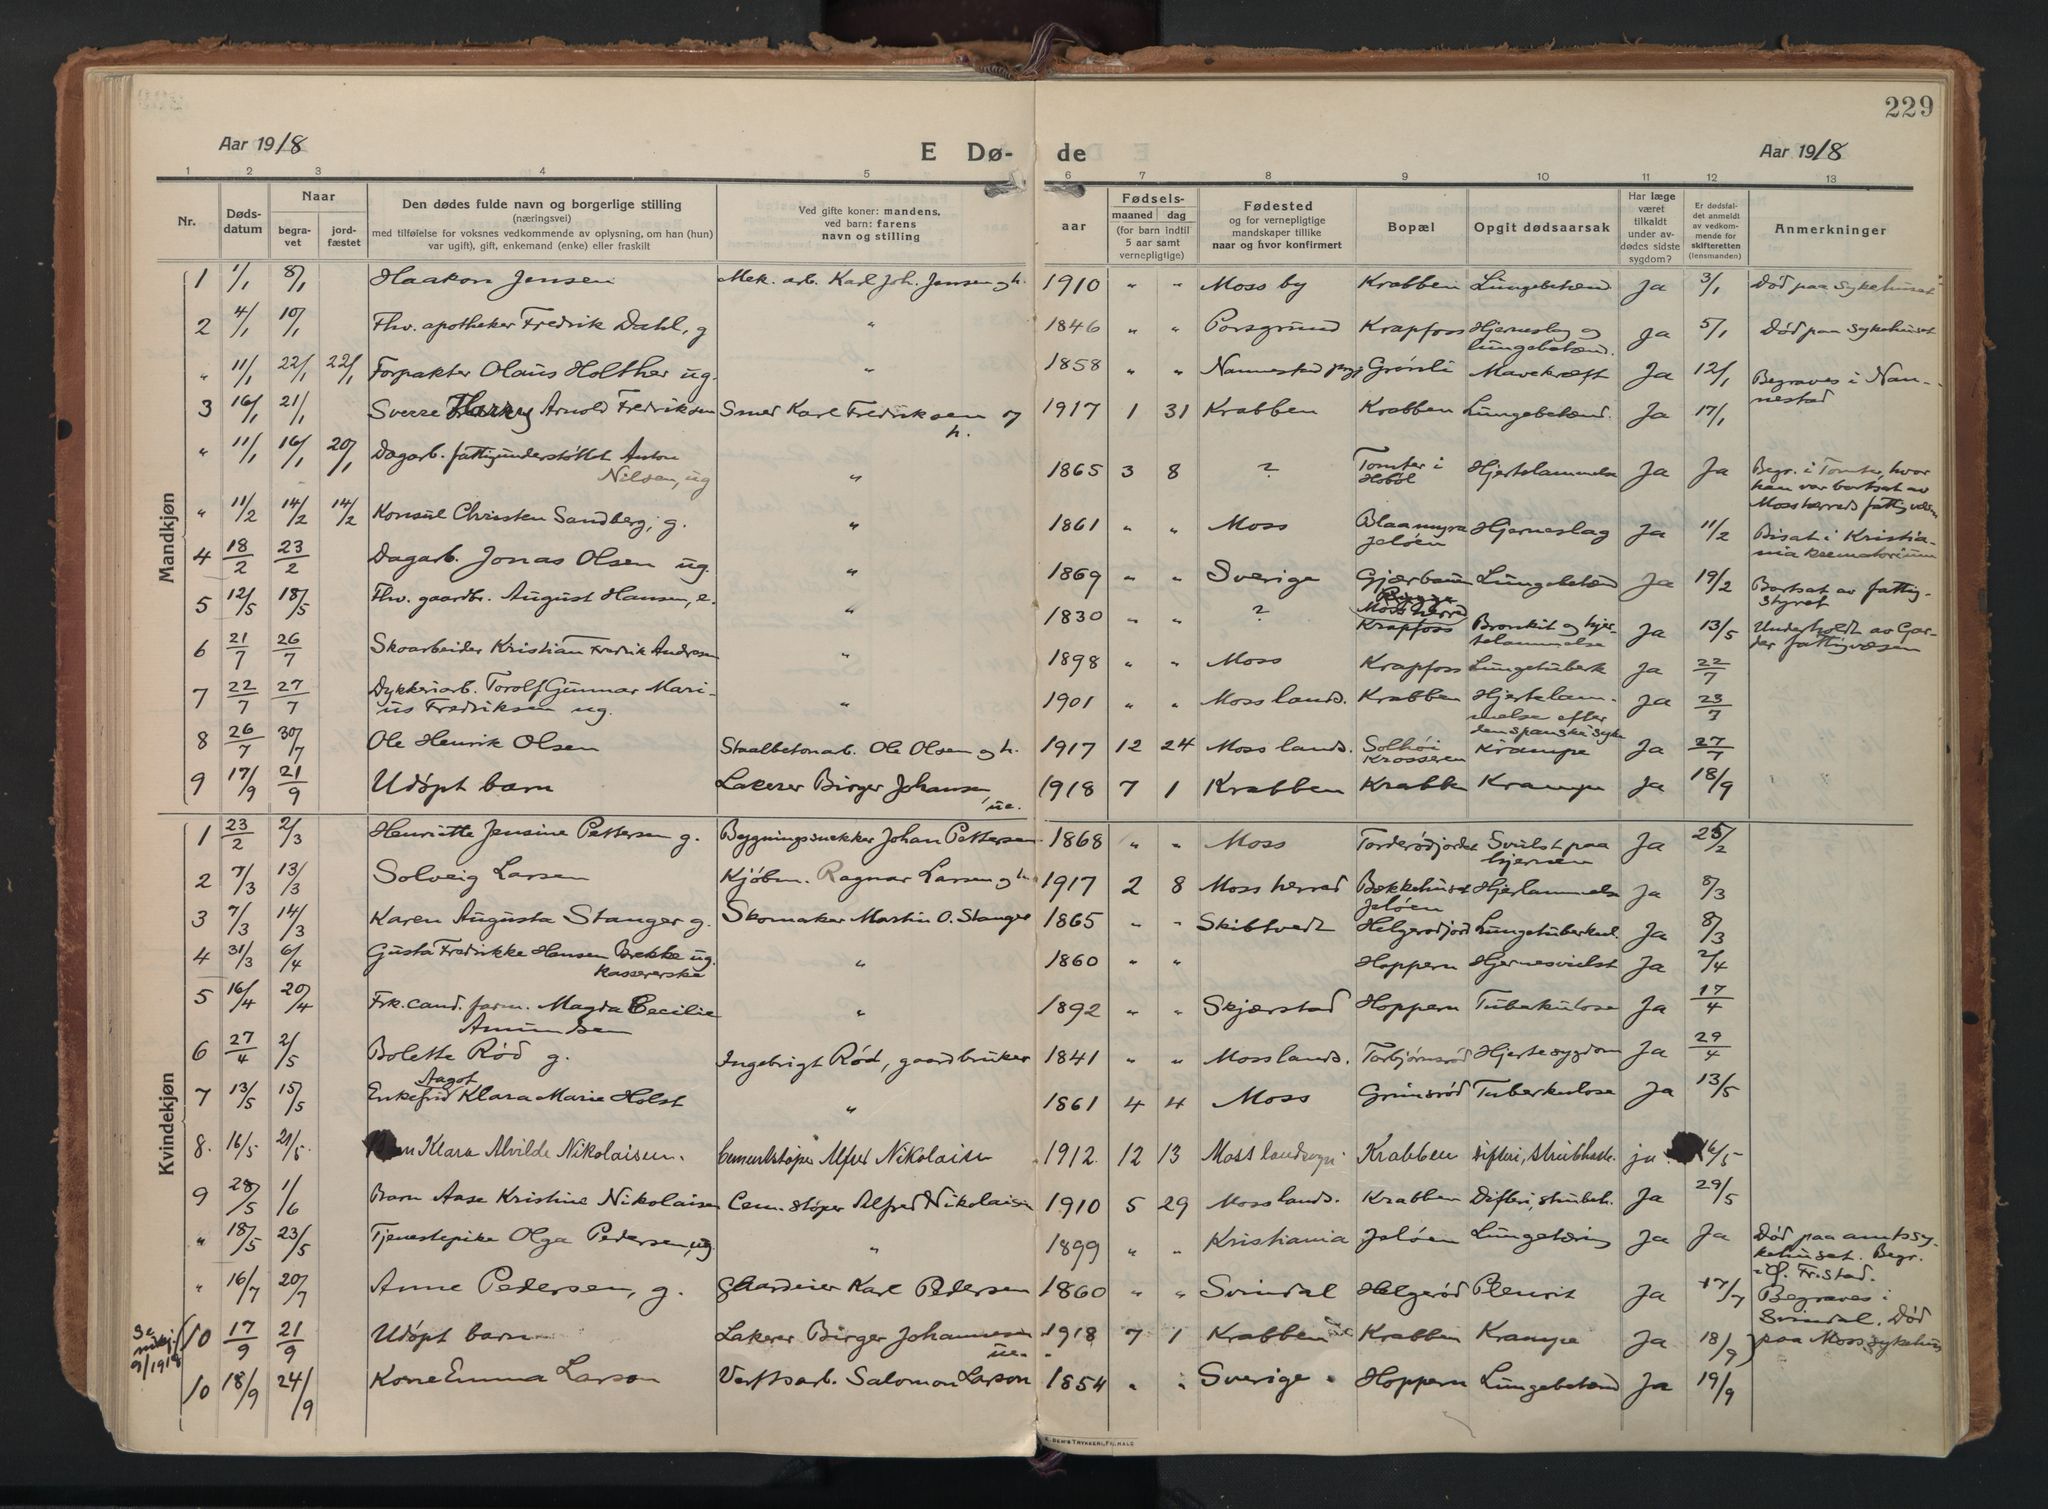 229
Aar 1918 E Dø- de Aar 1918
1 2 3 4 5 6 7 8 9 10 11 12 13
Nr. Døds-datum Naar begra-vet jord-fæstet Den dødes fulde navn og borgerlige stilling (næringsvei) med tilføielse for voksnes vedkommende av oplysning, om han (hun) var ugift), gift, enkemand (enke) eller fraskilt Ved gifte koner: mandens, ved barn: farens navn og stilling aar Fødsels- maaned dag (for barn indtil 5 aar samt vernepligtige) Fødested og for vernepligtige mandskaper tillike naar og hvor konfirmert Bopæl Opgit dødsaarsak Har læge været tilkaldt under av-dødes sidste sygdom? Er dødsfal-det anmeldt av vedkom-mende for skifteretten (lensmanden) Anmerkninger
Mandkjøn
1 1/1 8/1 Haakon Jensen Mek. arb. Karl Joh. Jensen og h. 1910 " " Moss by Krabben Lungebetænd Ja 3/1 Død paa sykehuset
2 4/1 10/1 Fhv. apotheker Fredrik Dahl, g " 1846 " " Porsgrund Krapfoss Hjerneslag og lungebetænd. Ja 5/1 Død paa sykehuset
" 11/1 22/1 22/1 Forpakter Olaus Holther ug. " 1858 " " Nannestad Grønli Mavekræft Ja 12/1 Begraves i Nan-nestad
3 16/1 21/1 Sverre Harry Arnold Fredriksen Smed Karl Fredriksen og h. 1917 1 31 Krabben Krabben Lungebetænd. Ja 17/1
" 11/1 16/1 20/1 Dagarb. fattigunderstøttet Anton Nilsen, ug " 1865 3 8 ? Tomter i Hobøl Hjertelammelse Ja Ja Begr. i Tomter, hvor han var bortsat av Moss herreds fattigvæsen
" 11/2 14/2 14/2 Konsul Christen Sandberg, g. " 1861 " " Moss Blaamyra Jeløen Hjerneslag Ja 11/2 Bisat i Kristia-nia krematorium
4 18/2 23/2 Dagarb. Jonas Olsen ug. " 1869 " " Sverige Gjærbauen Lungebetænd Ja 19/2 Bortsat av fattig-styret
5 12/5 18/5 Fhv. gaardbr. August Hansen, e. " 1830 ? Rygge Moss herred Krapfoss Bronkit og hjer-telammelse Ja 13/5 Underholdt av Gar-der fattigvæsen
6 21/7 26/7 Skoarbeider Kristian Fredrik Andresen " 1898 " " Moss Krapfoss Lungetuberk Ja 22/7
7 22/7 27/7 Dykkeriarb. Torolf Gunnar Mari-us Fredriksen ug. " 1901 " " Moss lands. Krabben Hjertelam-melse efter den spanske syke Ja 23/7
8 26/7 30/7 Ole Henrik Olsen Staalbetonarb. Ole Olsen og h. 1917 12 24 Moss lands. Solhøi Krosseren Krampe Ja 27/7
9 17/9 21/9 Udøpt barn Lakerer Birger Johansen, ue. 1918 7 1 Krabben Krabben Krampe Ja 18/9
Kvindekjøn
1 23/2 2/3 Henriette Jensine Pettersen g. Bygningssnekker Johan Pettersen 1868 " " Moss Torderødjordet Svulst paa hjernen Ja 25/2
2 7/3 13/3 Solveig Larsen Kjøbm. Ragnar Larsen og h. 1917 2 8 Moss herred Bækkehuset Jeløen Hjertelammelse Ja 8/3
3 7/3 14/3 Karen Augusta Stanger g. Skomaker Martin O. Stanger 1865 " " Skibtvedt Helgerødjord Lungetuberkul. Ja 8/3
4 31/3 6/4 Gusta Fredrikke Hansen Brekke ug. Kassererske " 1860 " " Hoppern Hjernesvulst Ja 2/4
5 16/4 20/4 Frk. cand. farm. Magda Cecilie Amundsen " 1892 " " Skjærstad Hoppern Tuberkulose Ja 17/4
6 27/4 2/5 Bolette Rød g. Ingebrigt Rød, gaardbruker 1841 " " Moss lands. Torbjørnsrød Hjertesygdom Ja 29/4
7 13/5 15/5 Enkefru Aagot Klara Marie Holst " 1861 4 4 Moss Grimsrød Tuberkulose Ja 13/5
8. 16/5 21/5. Barn Klara Alvilde Nikolaisen. Cementstøper Alfred Nikolaisen 1912 12 13 Moss landsogn Krabben Difteri, strubhoste. ja 16/5
9 28/5 1/6 Barn Aase Kristine Nikolaisen Cem. støper Alfred Nikolaisen 1910 5 29 Moss lands. Krabben Difteri, strubeh. Ja 29/5
" 18/5 23/5 Tjenestepike Olga Pedersen, ug. " 1899 " " Kristiania Jeløen Lungetæring Ja Ja Død paa amtssy-kehuset. Begr. i Ø. Fr.stad.
" 16/7 20/7 Anne Pedersen, g. Gaardeier Karl Pedersen 1860 " " Svindal Helgerød Plevrit Ja 17/7 Begraves i Svindal. Død paa Moss sykehus
Se mkj. 9/1918 10 17/9 21/9 Udøpt barn Lakerer Birger Johannesen ue. 1918 7 1 Krabben Krabben Krampe Ja 18/9
10 18/9 24/9 Kone Emma Larson Verftsarb. Salomon Larson 1854 " " Sverige Hoppern Lungebetænd Ja 19/9